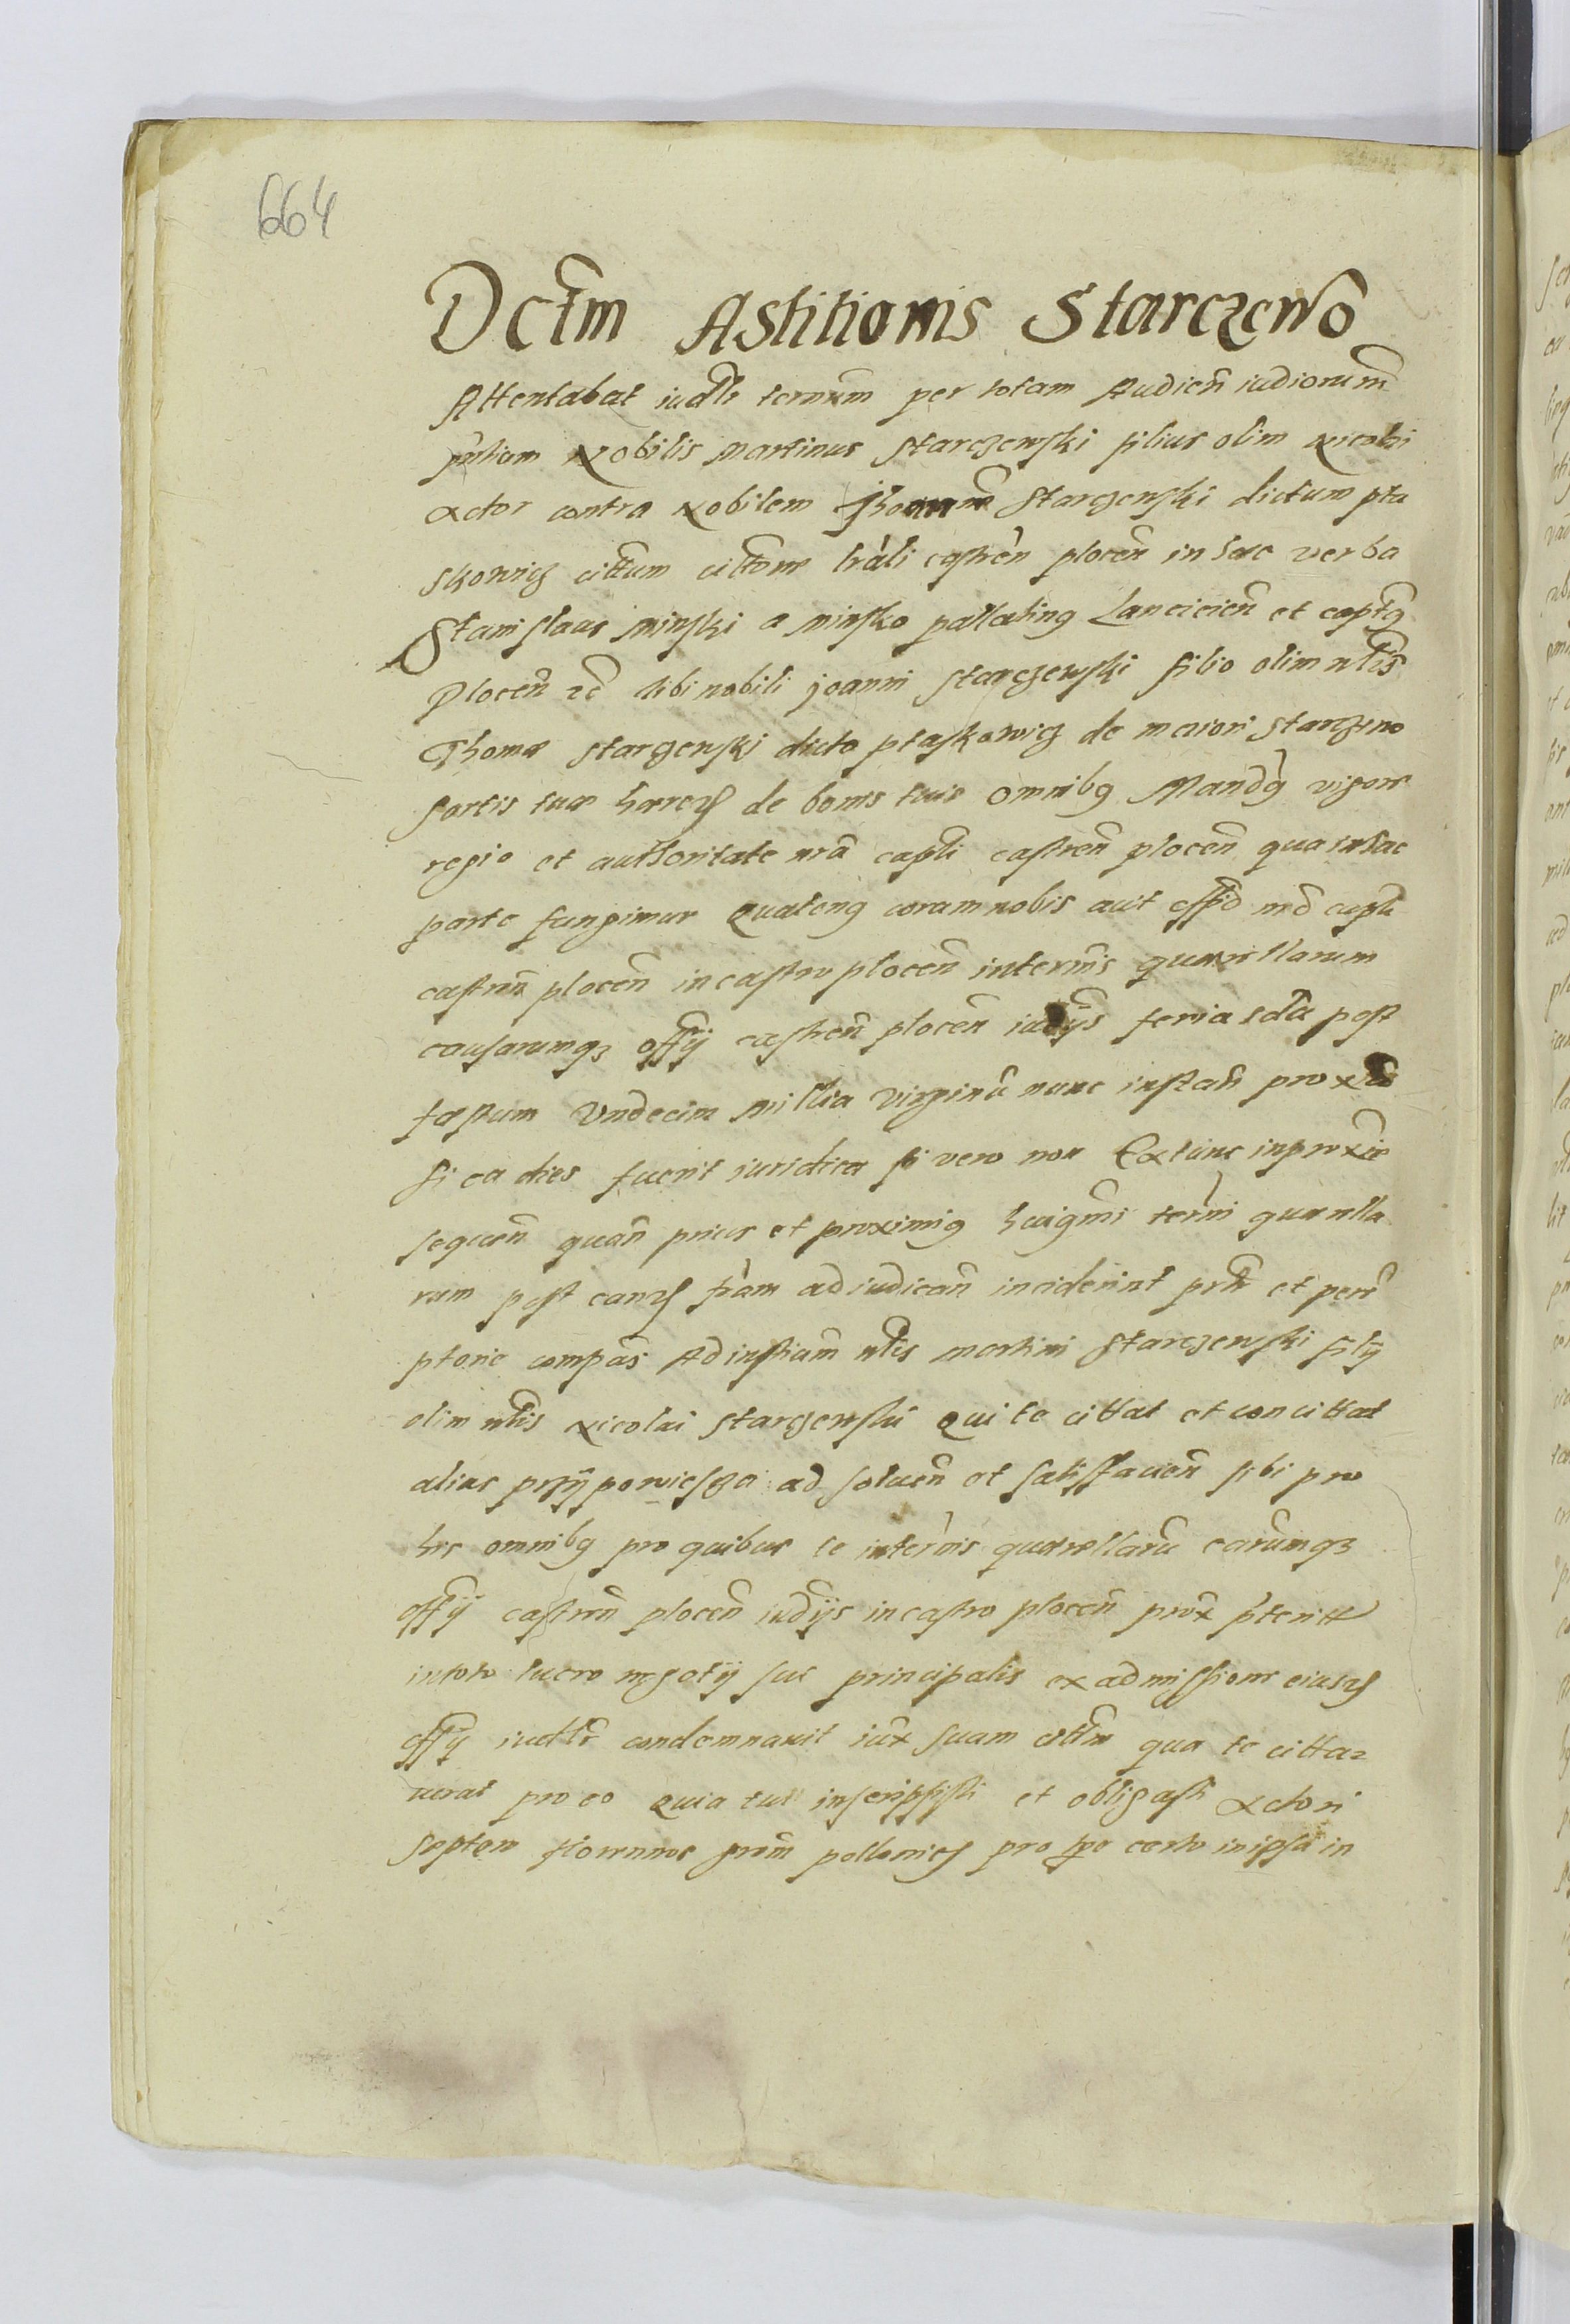 664
Dctm̃ Astitionis Starczewo
Attentabat iudlr termnum per totam Audien̄ iudiorum̃
pntium Nobilis Martinus Starczewski filius olim Nicolai
Actor contra Nobilem Starczewski dictum pta
skowicz cittum cittone lrali castreñ ploceñ in haec verba
Stanislaus Minski a Minsko pallating Lancicieñ et captg
Ploceñ zc̄ tibi nobili Joanni Starczewski filio olim nlis̄
Thomae Starczewski dicto ptaskowicz de maiori Starczewo
sortis tuae haerczȝ de bonis tuis omnibg Mandg vigore
regio et authoritate nrã capli castreñ ploceñ qua in hac
parte fungimur Quateng coram nobis aut offõ nrõ capli
castreñ ploceñ in castro ploceñ in termis querellarum
causarumqȝ offij castreñ ploceñ iudijs feria sda post
faestum Undecim Millia Virginũ nunc instañ proxiã
si ea dies fuerit iuridica si vero non Extunc in proxie
sequeñ quañ prius et proximig huigmi termi querella
rum post eanȝ fram adiudicañ inciderint prñr et perẽ
ptorie compãs Ad instiam nlis Martini Starczewski filij
olim nlis Nicolai Starczewski Qui te cittat et concittat
alias przypowiescza ad solueñ et satisffacieñ sibi pro
his omnibg pro quibus te in termis querellarũ carumqȝ
offij castreñ ploceñ iudijs in castro ploceñ prox pteritt
in toto lucro negotij sui principalis ex admissione eiusȝ
offij iudlr condemnauit iux suam cittm qua te citta
uerat pro eo Quia tu inscripsisti et obligasti Actori
septem florennos prom pollonicȝ pro tpe certo in ipsa in